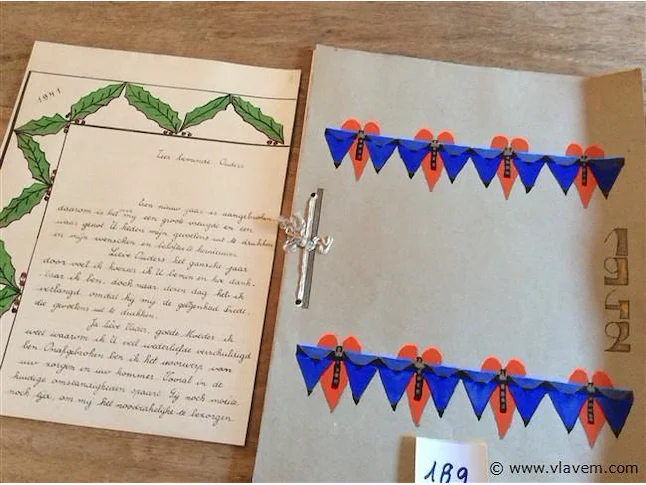 1941
Zeer beminde Ouders
Een nieuw jaar is aangebroken
daarom is het mij een groote vreugde en een
waar genot U heden mijn gevoelens uit te drukken
en mijn wenschen en beloften te hernieuwen.
Lieve Ouders het gansche jaar
door voel ik hoezeer ik U bemin en hoe dank-
baar ik ben, doch naar dezen dag heb ik
verlangd omdat hij mij de gelegenheid biedt,
die gevoelens uit te drukken.
Ja lieve Vader, goede Moeder ik
weet waarom ik U veel wederliefde verschuldigd
ben. Onafgebroken ben ik het voorwerp van
uw zorgen en uw kommer. Vooral in de
huidige omstandigheden spaart Gij noch moeite
noch tijd, om mij het noodzakelijke te bezorgen
1942
189
© www.vlavem.com